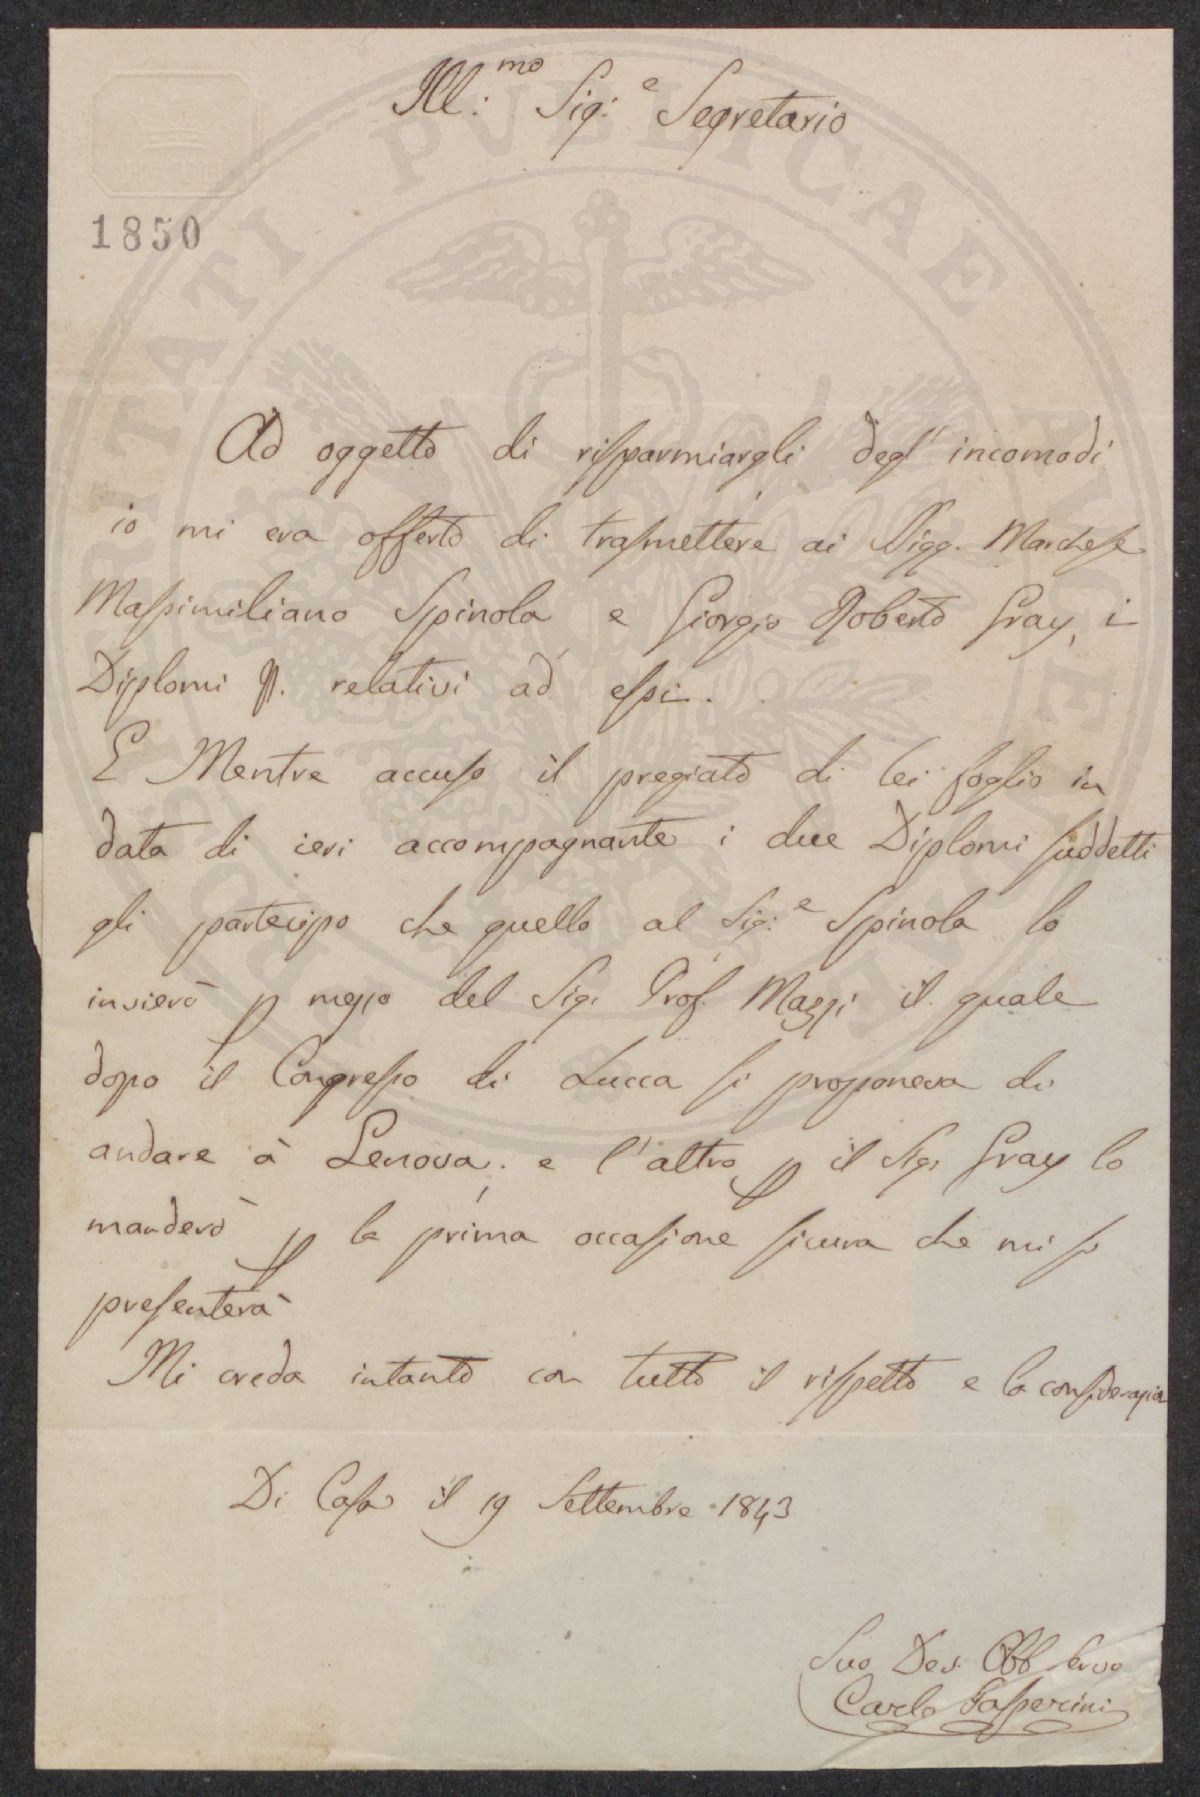 Ill:mo Sig:e Segretario
1850
Ad oggetto di risparmiargli degl'incomodi
io mi era offerto di trasmettere ai Sigg. Marchese
Massimiliano Spinola e Giorgio Roberto Gray, i
Diplomi relativi ad essi.
E Mentre accuso il pregiato di lei foglio in
data di ieri accompagnante i due Diplomi suddetti
gli partecipo che quello al Sig:e Spinola lo
invierò p mezzo del Sig. Prof. Mazzi il quale
dopo il Congresso di Lucca si proponeva di
andare à Genova. e l'altro p il Sig. Gray lo
manderò p la prima occasione sicura che mi si
presenterà
Mi creda intanto con tutto il rispetto e la considerazion
Di Casa il 19 Settembre 1843
Suo Dev. Obb Servo
Carlo Passerini
PUBLICAE